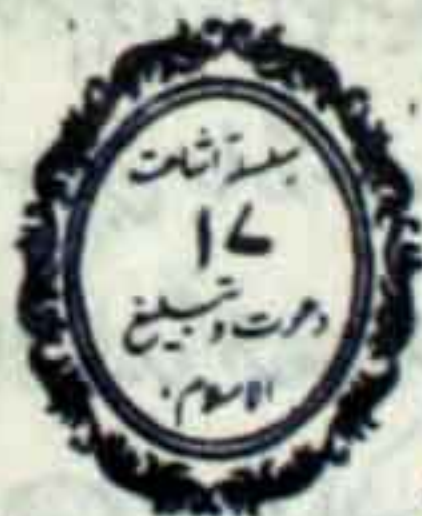 سلسلۂ اشاعت
۱۷
دعوت و تبلیغ
الاسلام۔